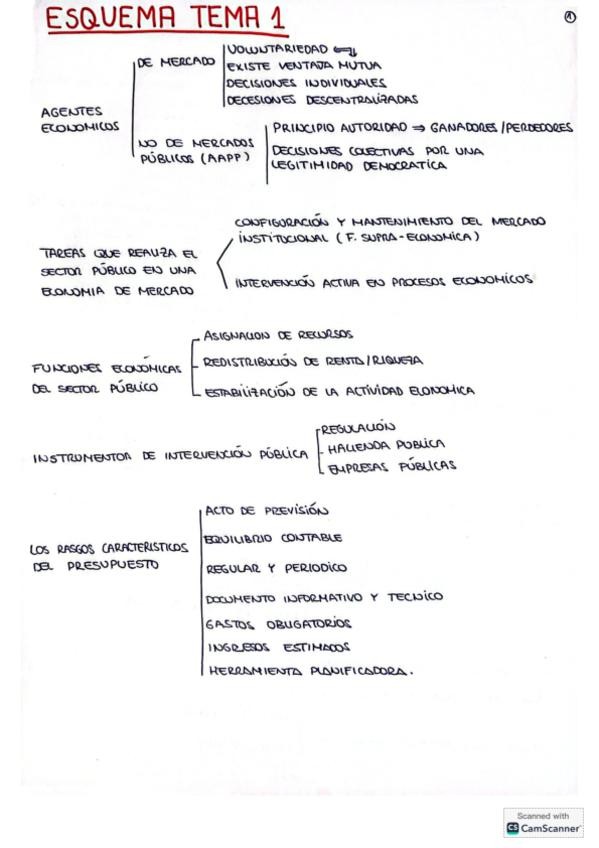 ESQUEMA TEMA 1
1
AGENTES
ECONOMICOS
DE MERCADO
VOLUNTARIEDAD
EXISTE VENTAJA MUTUA
DECISIONES INDIVIDUALES
DECESIONES DESCENTRALIZADAS
NO DE MERCADOS
PÚBLICOS (AAPP)
PRINCIPIO AUTORIDAD ⇒ GANADORES/PERDEDORES
DECISIONES COLECTIVAS POR UNA
LEGITIMIDAD DEMOCRATICA
TAREAS QUE REALIZA EL
SECTOR PÚBLICO EN UNA
ECONOMIA DE MERCADO
CONFIGURACIÓN Y MANTENIMIENTO DEL MERCADO
INSTITUCIONAL (F. SUPRA-ECONOMICA)
INTERVENCIÓN ACTIVA EN PROCESOS ECONOMICOS
FUNCIONES ECONÓMICAS
DEL SECTOR PÚBLICO
ASIGNACION DE RECURSOS
REDISTRIBUCIÓN DE RENTA/RIQUEZA
ESTABILIZACIÓN DE LA ACTIVIDAD ECONOMICA
INSTRUMENTOR DE INTERVENCIÓN PÚBLICA
REGULACIÓN
HACIENDA PUBLICA
EMPRESAS PÚBLICAS
LOS RASGOS CARACTERISTICOS
DEL PRESUPUESTO
ACTO DE PREVISIÓN
EQUILIBRIO CONTABLE
REGULAR Y PERIODICO
DOCUMENTO INFORMATIVO Y TECNICO
GASTOS OBLIGATORIOS
INGRESOS ESTIMADOS
HERRAMIENTA PLANIFICADORA.
Scanned with
CS CamScanner